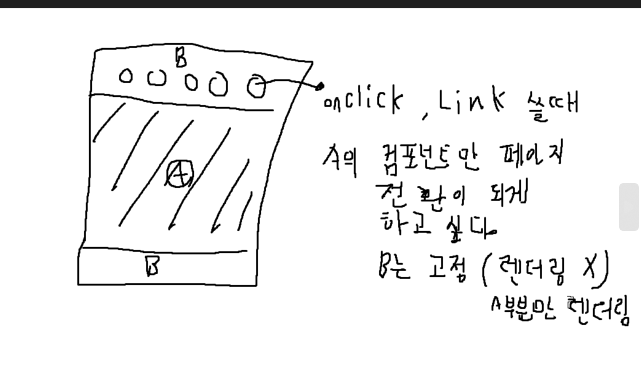 B
onclick, Link 쓸때
A의 컴포넌트만 페이지
전환이 되게
하고 싶다.
A
B는 고정 (렌더링 X)
B
A부분만 렌더링